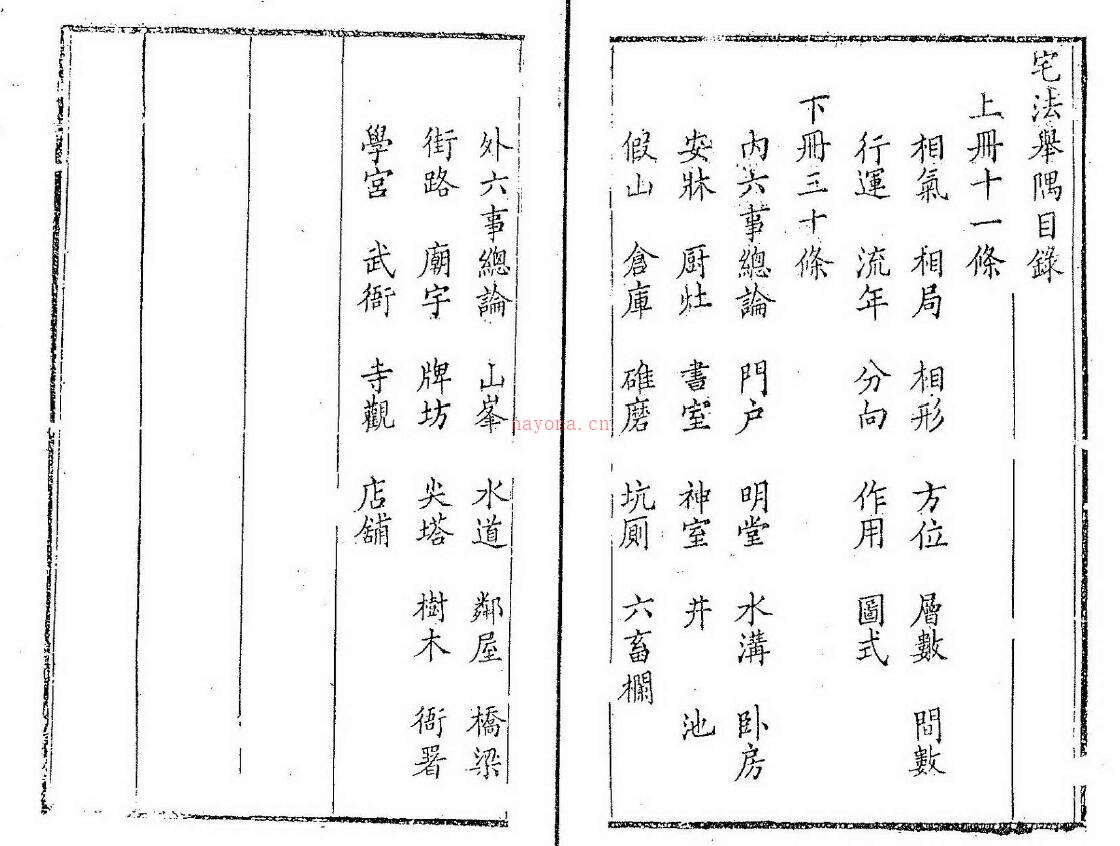 宅法舉隅目錄
上冊十一條
相氣 相局 相形 方位 層數 間數
行運 流年 分向 作用 圖式
下冊三十條
內六事總論 門戶 明堂 水溝 卧房
安牀 厨灶 書室 神室 井 池
假山 倉庫 碓磨 坑厠 六畜欄
外六事總論 山峯 水道 鄰屋 橋梁
街路 廟宇 牌坊 尖塔 樹木 衙署
學宮 武衙 寺觀 店舖
nayona.cn